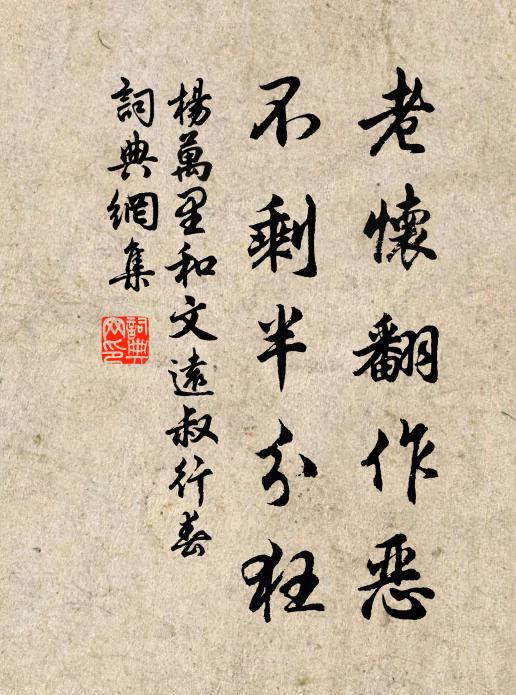 老懷翻作惡
不剩半分狂
楊萬里和文遠叔行春
詞典網集
詞典網印